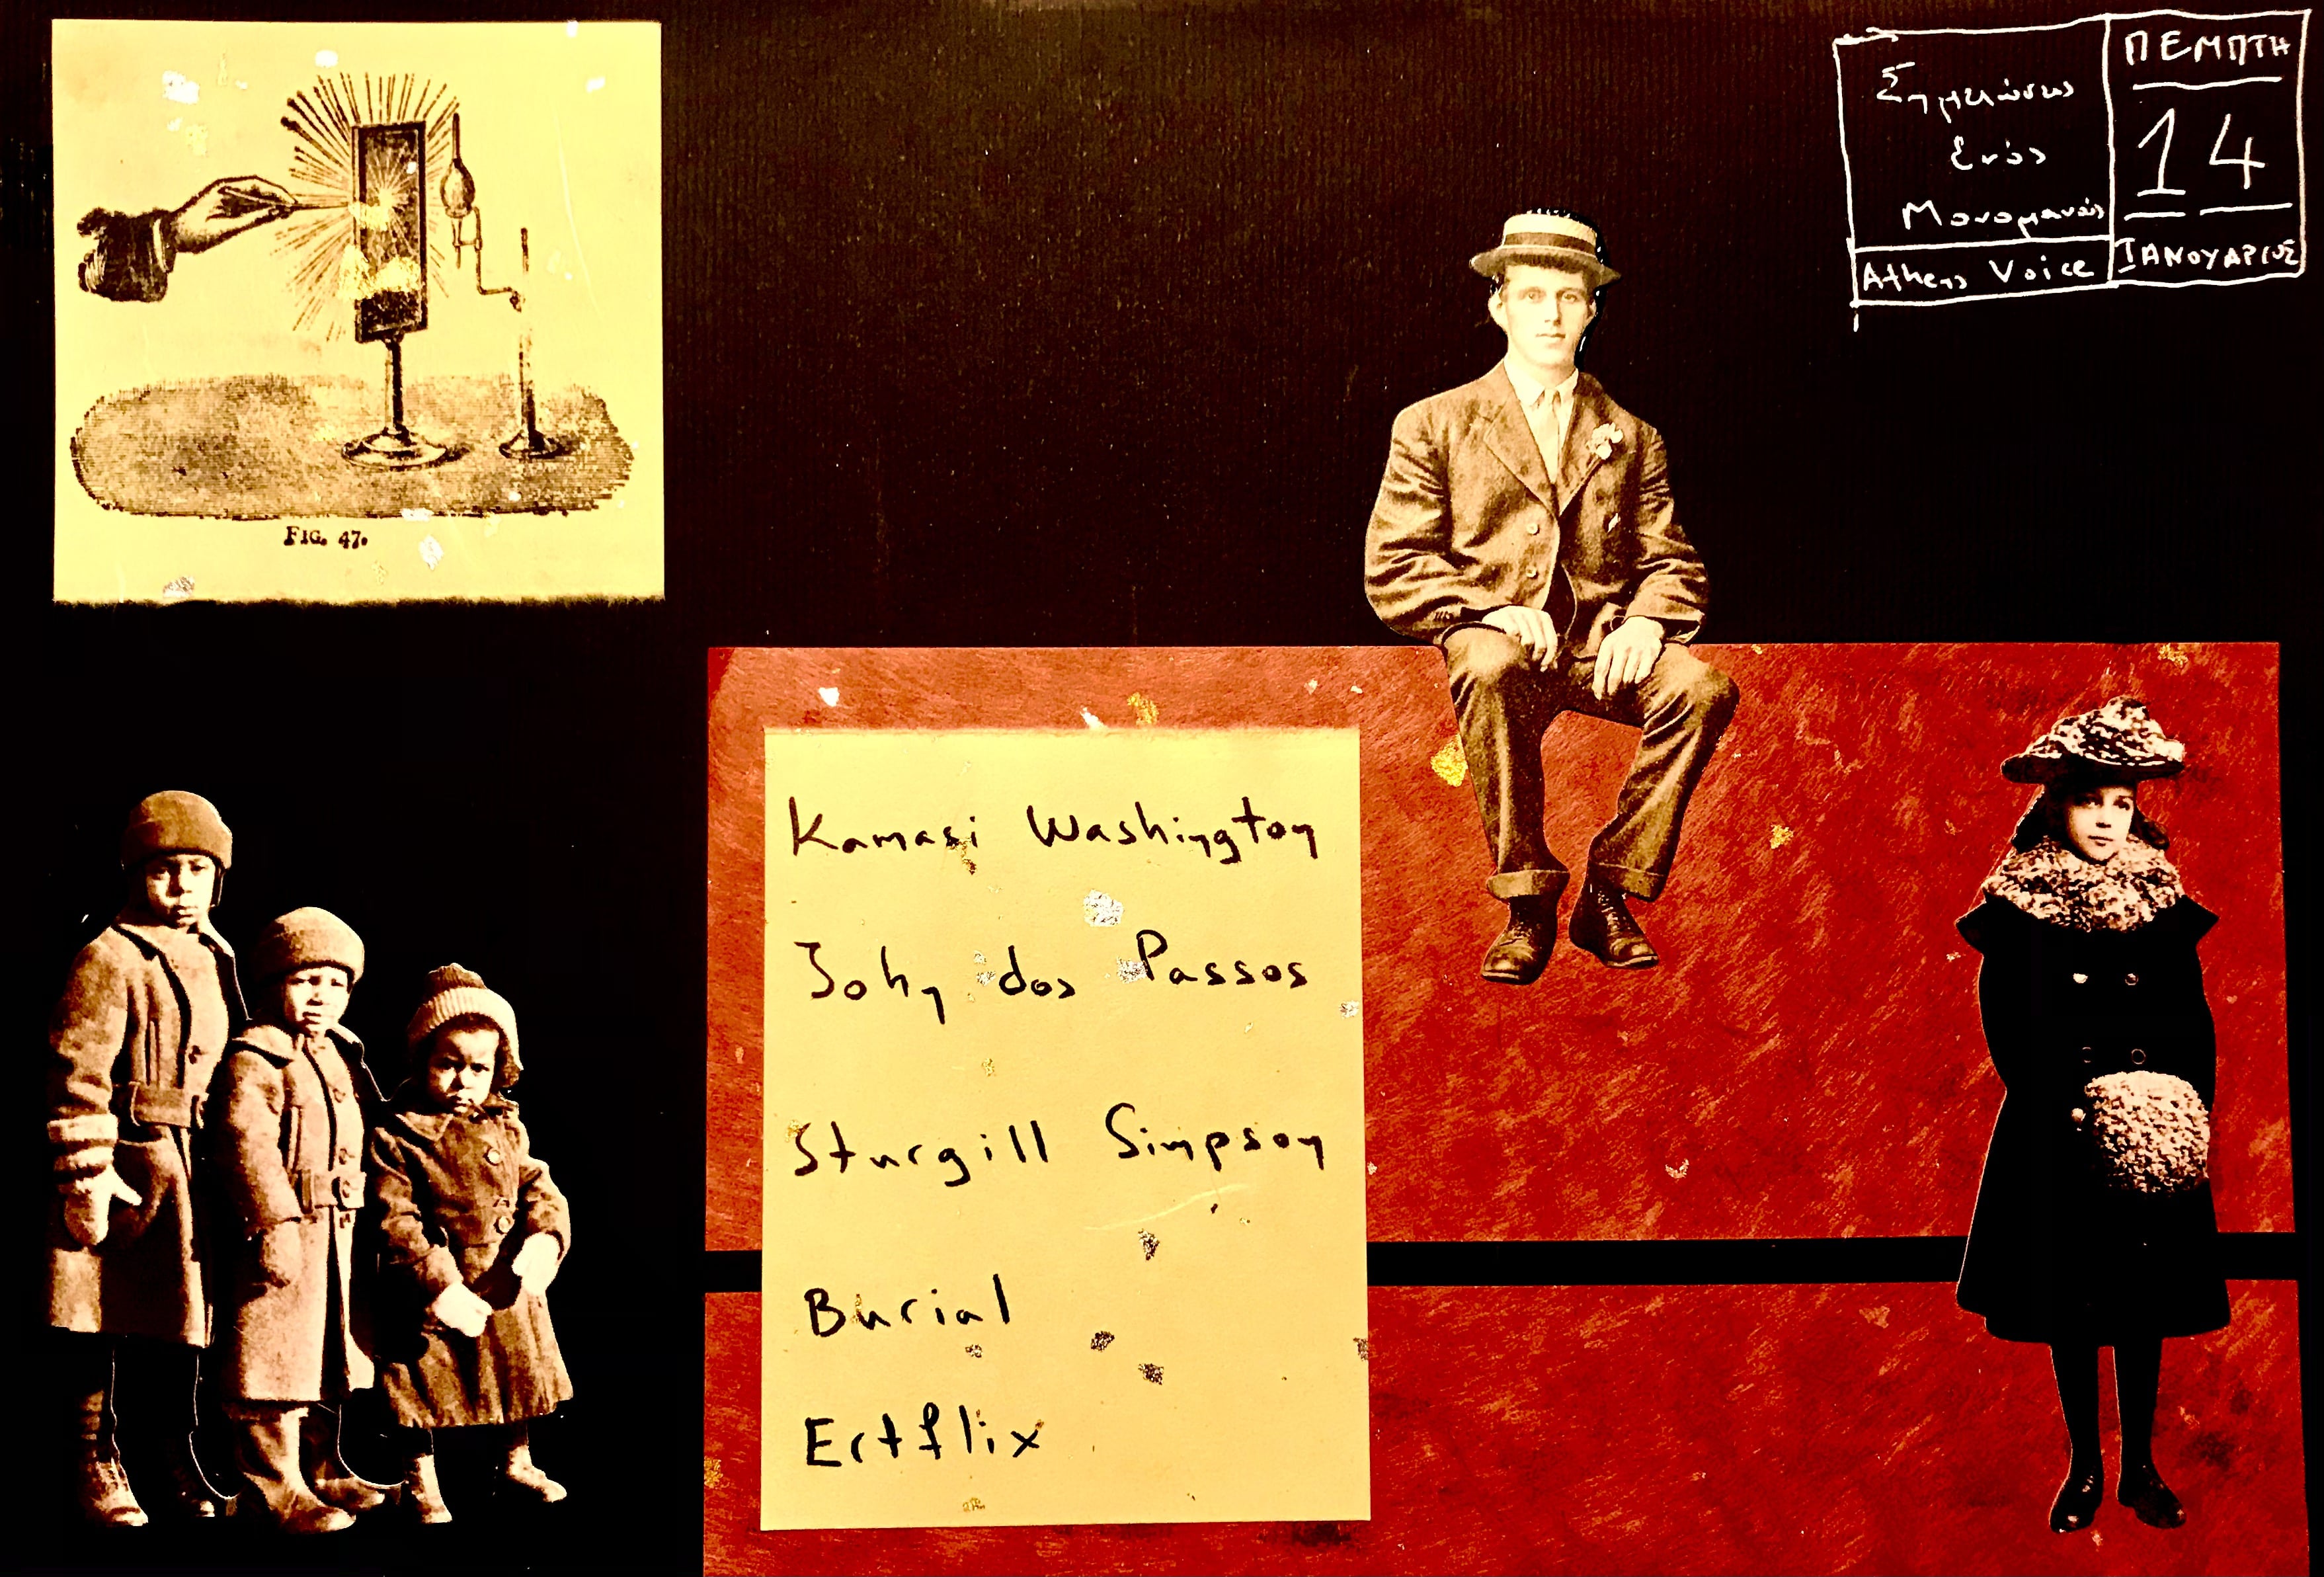 FIG. 47.
Σημειώσεις
ενός
Μονομανούς
Athens Voice
ΠΕΜΠΤΗ
14
ΙΑΝΟΥΑΡΙΟΣ
Kamasi Washington
John dos Passos
Sturgill Simpson
Burial
Ertflix